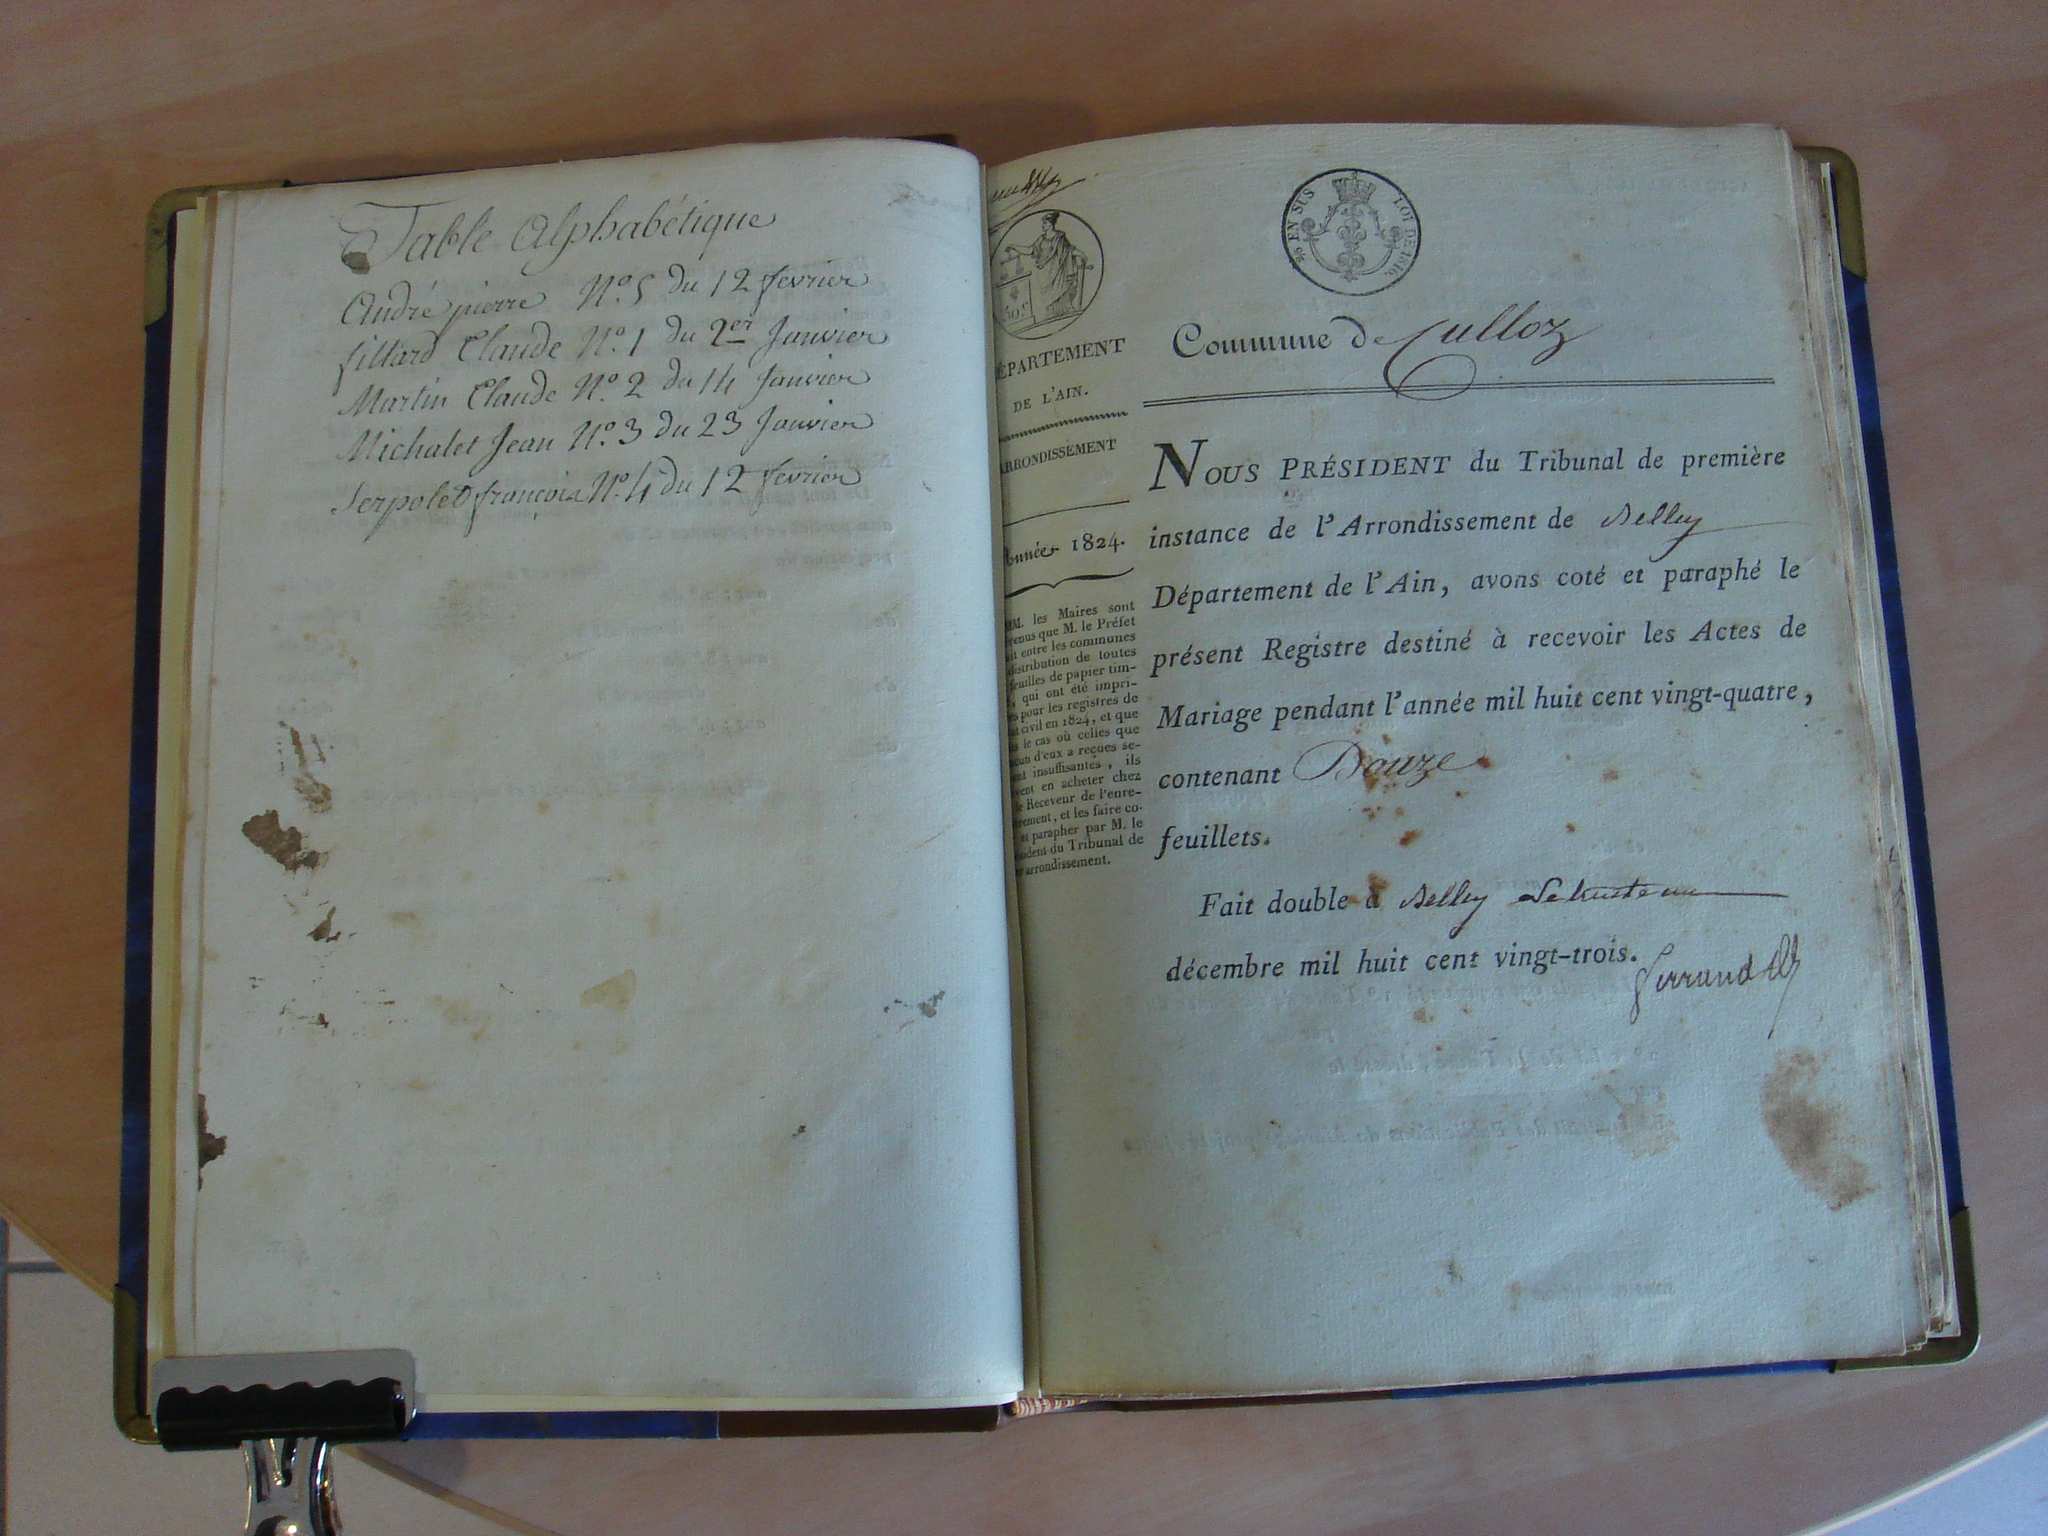 Table Alphabétique
André pierre N.o 5 du 12 fevrier
fillard Claude N.o 1 du 2er Janvier
Martin Claude N.o 2 du 14 Janvier
Michalet Jean N.o 3 du 23 Janvier
Serpolet françois N.o 4 du 12 fevrier
EN SUS LOI DE 1816.
50 c
DÉPARTEMENT
DE L'AIN.
ARRONDISSEMENT
Année 1824.
MM. les Maires sont
que M. le Préfet
entre les communes
distribution de toutes
feuilles de papier tim-
, qui ont été impri-
pour les registres de
civil en 1824, et que
le cas où celles que
d'eux a reçues se-
insuffisantes, ils
en acheter chez
le Receveur de l'enre-
, et les faire co-
et parapher par M. le
du Tribunal de
arrondissement.
Commune de Culloz
NOUS PRÉSIDENT du Tribunal de première
instance de l'Arrondissement de Belley
Département de l'Ain, avons coté et paraphé le
présent Registre destiné à recevoir les Actes de
Mariage pendant l'année mil huit cent vingt-quatre,
contenant Douze
feuillets.
Fait double à Belley
décembre mil huit cent vingt-trois.